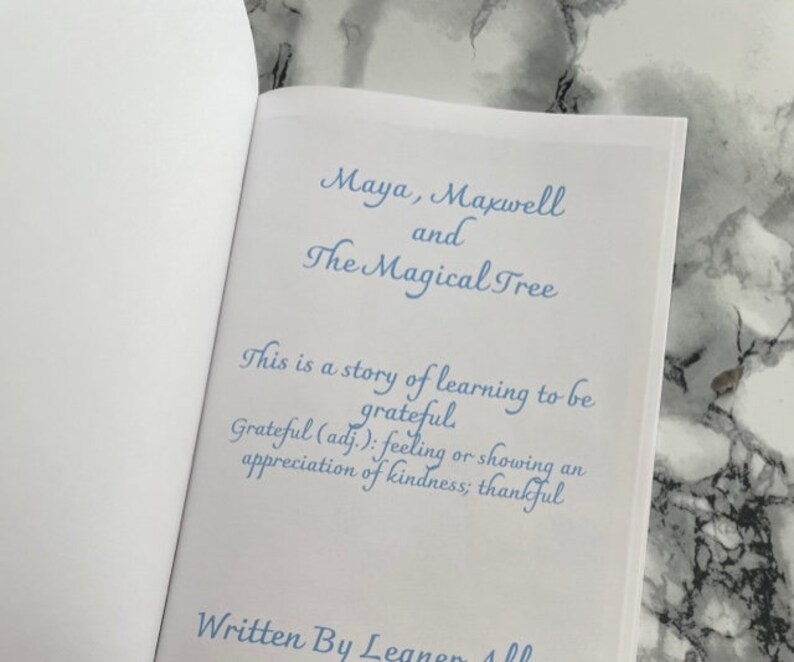 Maya, Maxwell
and
The Magical Tree
This is a story of learning to be
grateful.
Grateful (adj.): feeling or showing an
appreciation of kindness; thankful
Written By